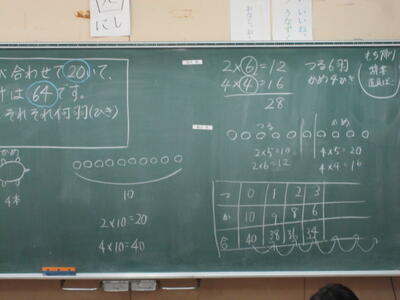 にし
い合わせて20いて、
けは64です。
それぞれ何羽(ひき)
かめ
4本
10
2×10=20
4×10=40
2×6=12
4×4=16
28
つる6羽
かめ4ひき
つる かめ
2×5=10 4×5=20
2×6=12 4×4=16
つ 0 1 2 3
か 10 9 8 6
合 40 38 36 34